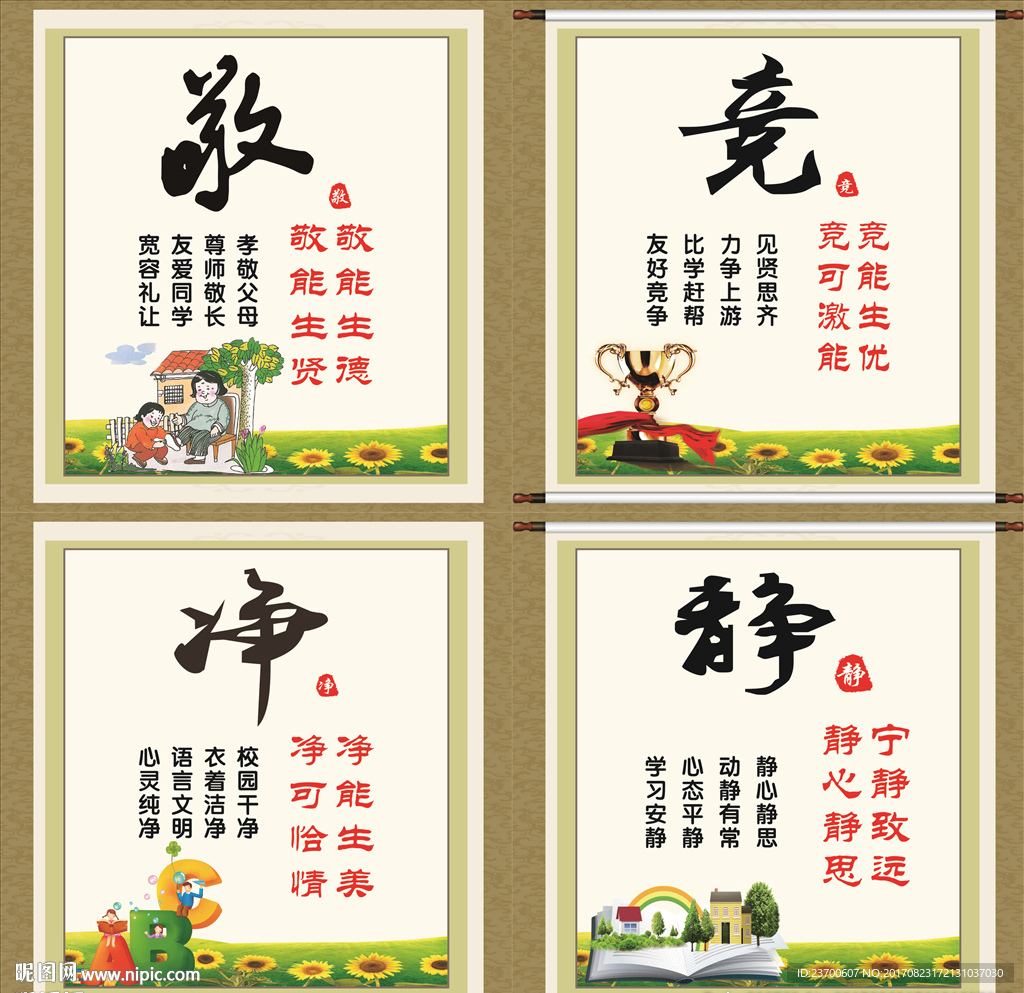 敬
敬
敬能生德
敬能生贤
孝敬父母
尊师敬长
友爱同学
宽容礼让
竞
竞
竞能生优
竞可激能
见贤思齐
力争上游
比学赶帮
友好竞争
净
净
净能生美
净可怡情
校园干净
衣着洁净
语言文明
心灵纯净
ABC
静
静
宁静致远
静心静思
静心静思
动静有常
心态平静
学习安静
昵图网 www.nipic.com
ID:23700607 NO:20170823172131037030